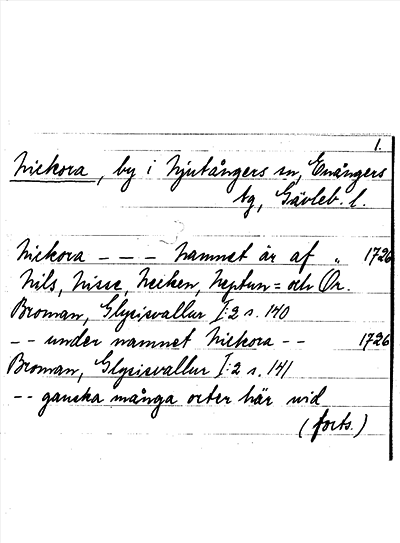 1.
Nickora, by i Njutångers sn, Enångers
tg, Gävleb. l.
Nickora - - - namnet är af „ 1726
Nils, Nisse, Necken, Neptun = och Or.
Broman, Glysisvallur I:2 s. 140
- - under namnet Nickora - - 1726
Broman, Glysisvallur I:2 s. 141
- - ganska många orter här wid
(forts.)